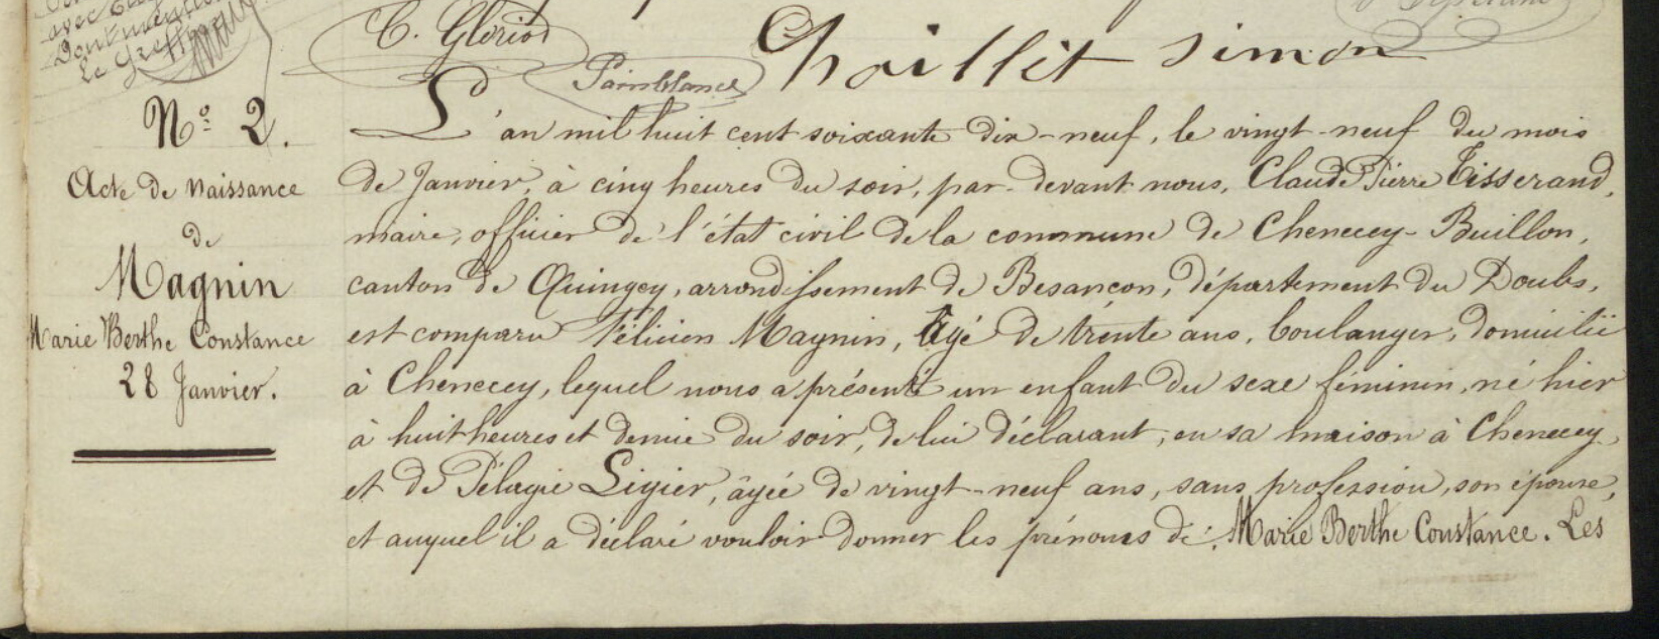 avec
Le Greffier
C. Gloriod
Painblanc
Chaillet simon
N° 2.
Acte de Naissance
de
Magnin
Marie Berthe Constance
28 Janvier.
L'an mil huit cent soixante dix-neuf, le vingt-neuf du mois
de Janvier, à cinq heures du soir, par-devant nous, Claude Pierre Tisserand,
maire, officier de l'état civil de la commune de Chenecey-Buillon,
canton de Quingey, arrondissement de Besançon, département du Doubs,
est comparu Félicien Magnin, âgé de trente ans, boulanger, domicilié
à Chenecey, lequel nous a présenté un enfant du sexe féminin, né hier
à huit heures et demie du soir, de lui déclarant, en sa maison à Chenecey,
et de Pélagie Ligier, âgée de vingt-neuf ans, sans profession, son épouse,
et auquel il a déclaré vouloir donner les prénoms de: Marie Berthe Constance. Les